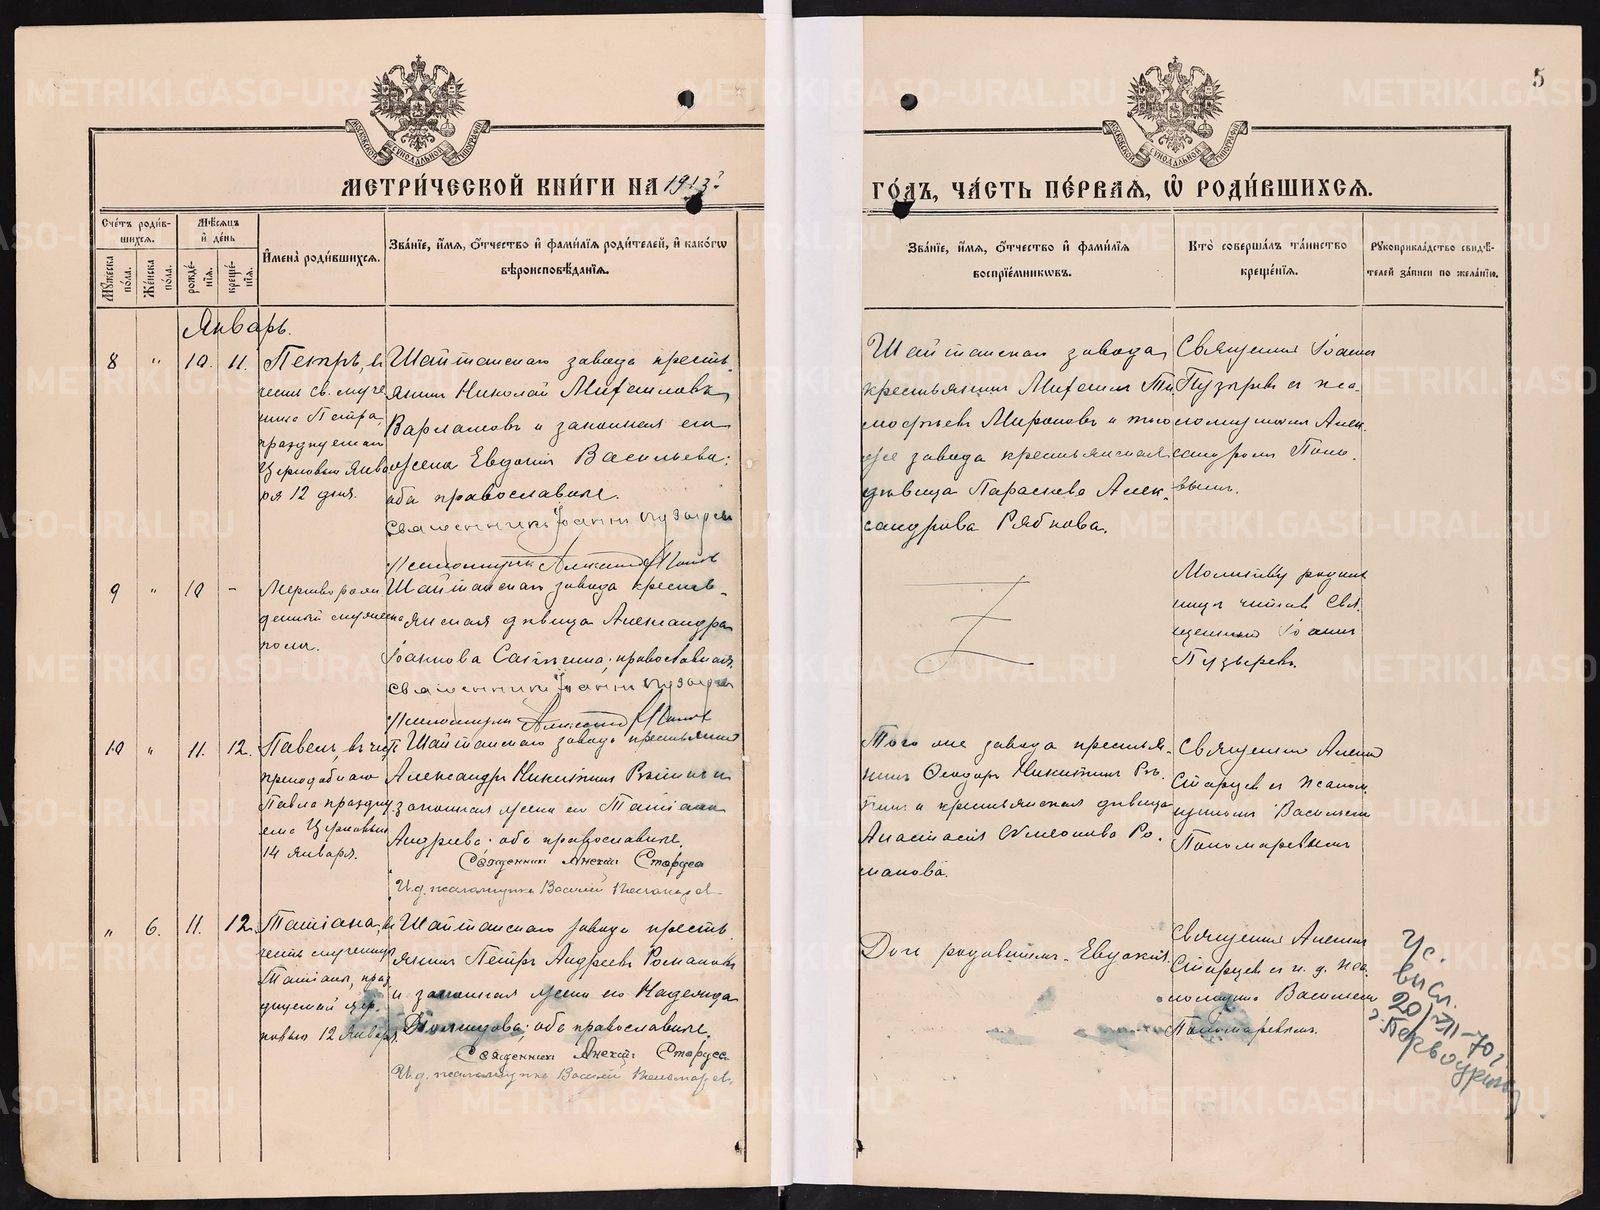 5
МЕТРИ́ЧЕСКОЙ КНИ́ГИ НА 1913 г
ГО́ДЪ, ЧА́СТЬ ПЕ́РВАѦ, Ѡ҆ РОДИ́ВШИХСѦ.
Сче́тъ роди́в-
шихсѧ.
Мѣ́сѧцъ
и҆ де́нь
Мꙋ́жеска по́ла.
Же́нска по́ла.
рожде́-
нїѧ.
креще́-
нїѧ.
И҆мена̀ роди́вшихсѧ.
Зва́нїе, и҆́мѧ, ѻ҆́тчество и҆ фами́лїѧ роди́телей, и҆ како́гѡ
вѣроисповѣ́данїѧ.
Зва́нїе, и҆́мѧ, ѻ҆́тчество и҆ фами́лїѧ
воспрїе́мникѡвъ.
Кто̀ соверша́лъ та́инство
креще́нїѧ.
Рꙋкоприкла́дство свидѣ́-
телей за́писи по жела́нїю.
Январь.
8 " 10. 11.
Петръ, въ
честь св. муче
ника Петра,
празднуемаго
Церковью Янва
ря 12 дня.
Шайтанскаго завода кресть-
янинъ Николай Михаиловъ
Варламовъ и законная его
жена Евдокія Васильева;
оба православные.
Священникъ Іоаннъ Пузырев
Псаломщикъ Александръ Попов
Шайтанскаго завода
крестьянинъ Михаилъ Ти-
мофѣевъ Мироновъ и того
же завода крестьянская
дѣвица Параскева Алек-
сандрова Рябкова.
Священникъ Іоаннъ
Пузыревъ съ пса-
ломщикомъ Алек-
сандромъ Попо-
вымъ.
9 " 10 -
Мертворож
денный мужеска
полъ.
Шайтанскаго завода кресть-
янская дѣвица Александра
Іоаннова Сапегина; православная.
Священникъ Іоаннъ Пузырев
Псаломщикъ Александръ Попов
Молитву родиль
ницѣ читалъ Свя-
щенникъ Іоаннъ
Пузыревъ.
10 " 11. 12.
Павелъ, въ честь
преподобнаго
Павла праздну
емаго Церковью
14 Января.
Шайтанскаго завода крестьянинъ
Александръ Никитинъ и
законная жена его Татіана
Андреева; оба православные.
Священникъ Алексій Старцев
И.д. псаломщика Василій Пономарев
Того же завода крестья-
нинъ Ѳеодоръ Никитинъ
и крестьянская дѣвица
Анастасія Симеонова Ро-
манова.
Священникъ Алексій
Старцевъ съ псалом-
щикомъ Василіемъ
Пономаревымъ
" 6. 11. 12.
Татіана, въ
честь мученицы
Татіаны, праз
днуемой Цер-
ковью 12 Января.
Шайтанскаго завода кресть-
янинъ Петръ Андреевъ Романовъ
и законная жена его Надежда
оба православные.
Священникъ Алексій Старцев
И.д. псаломщика Василій Пономарев
Дочь родителя Евдокія
Священникъ Алексій
Старцевъ съ и. д. пса-
ломщика Василіемъ
Пономаревымъ.
г/с.
высл.
20/VII-70г
г. Первоуральск